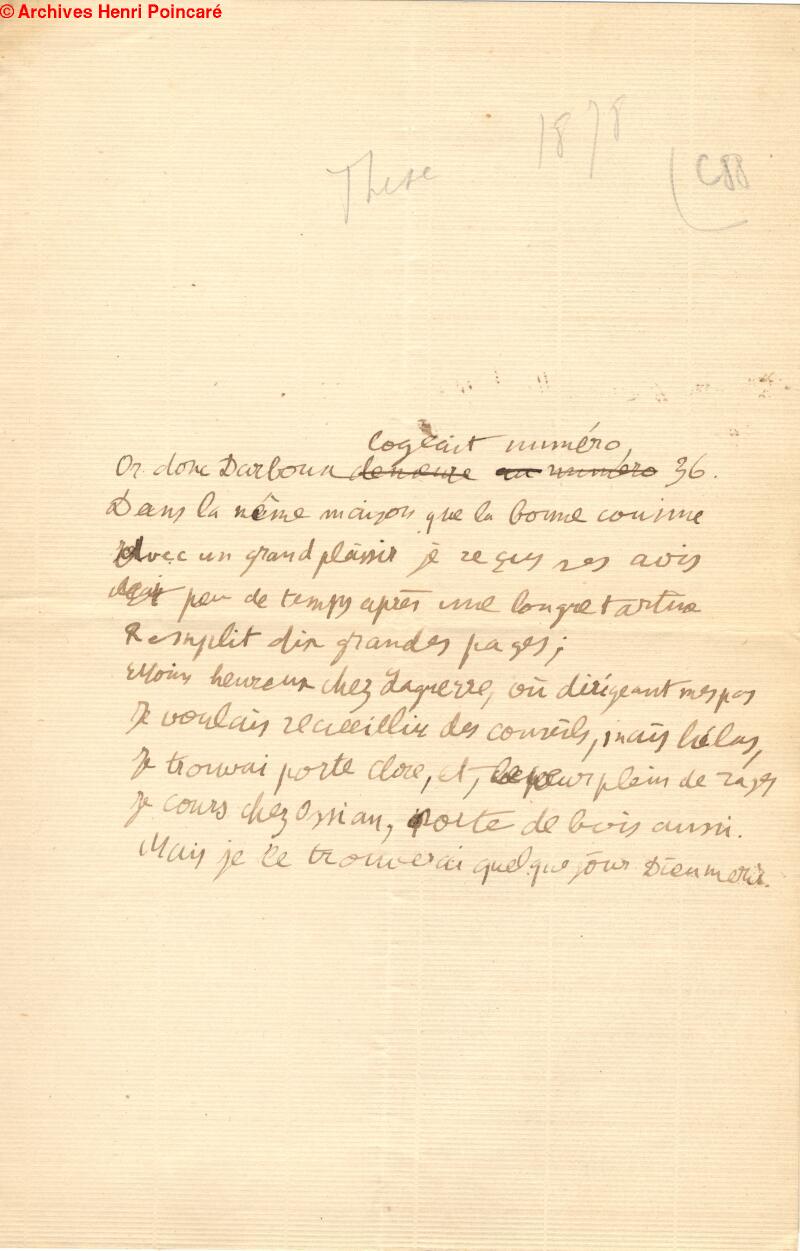 © Archives Henri Poincaré
1878
These
C88
logeait numéro
Or donc Darboux demeure au numéro 36.
Dans la même maison que la bonne cousine
Avec un grand plaisir je reçus ses avis
peu de temps après une longue tartine
Remplit dix grandes pages;
Moins heureux chez Laguerre, où dirigeant mes pas
Je voulais recueillir des conseils, mais hélas,
Je trouvai porte close, et, le cœur plein de rages
Je cours chez Ossian, porte de bois aussi.
Mais je le trouverai quelque jour Dieu merci.